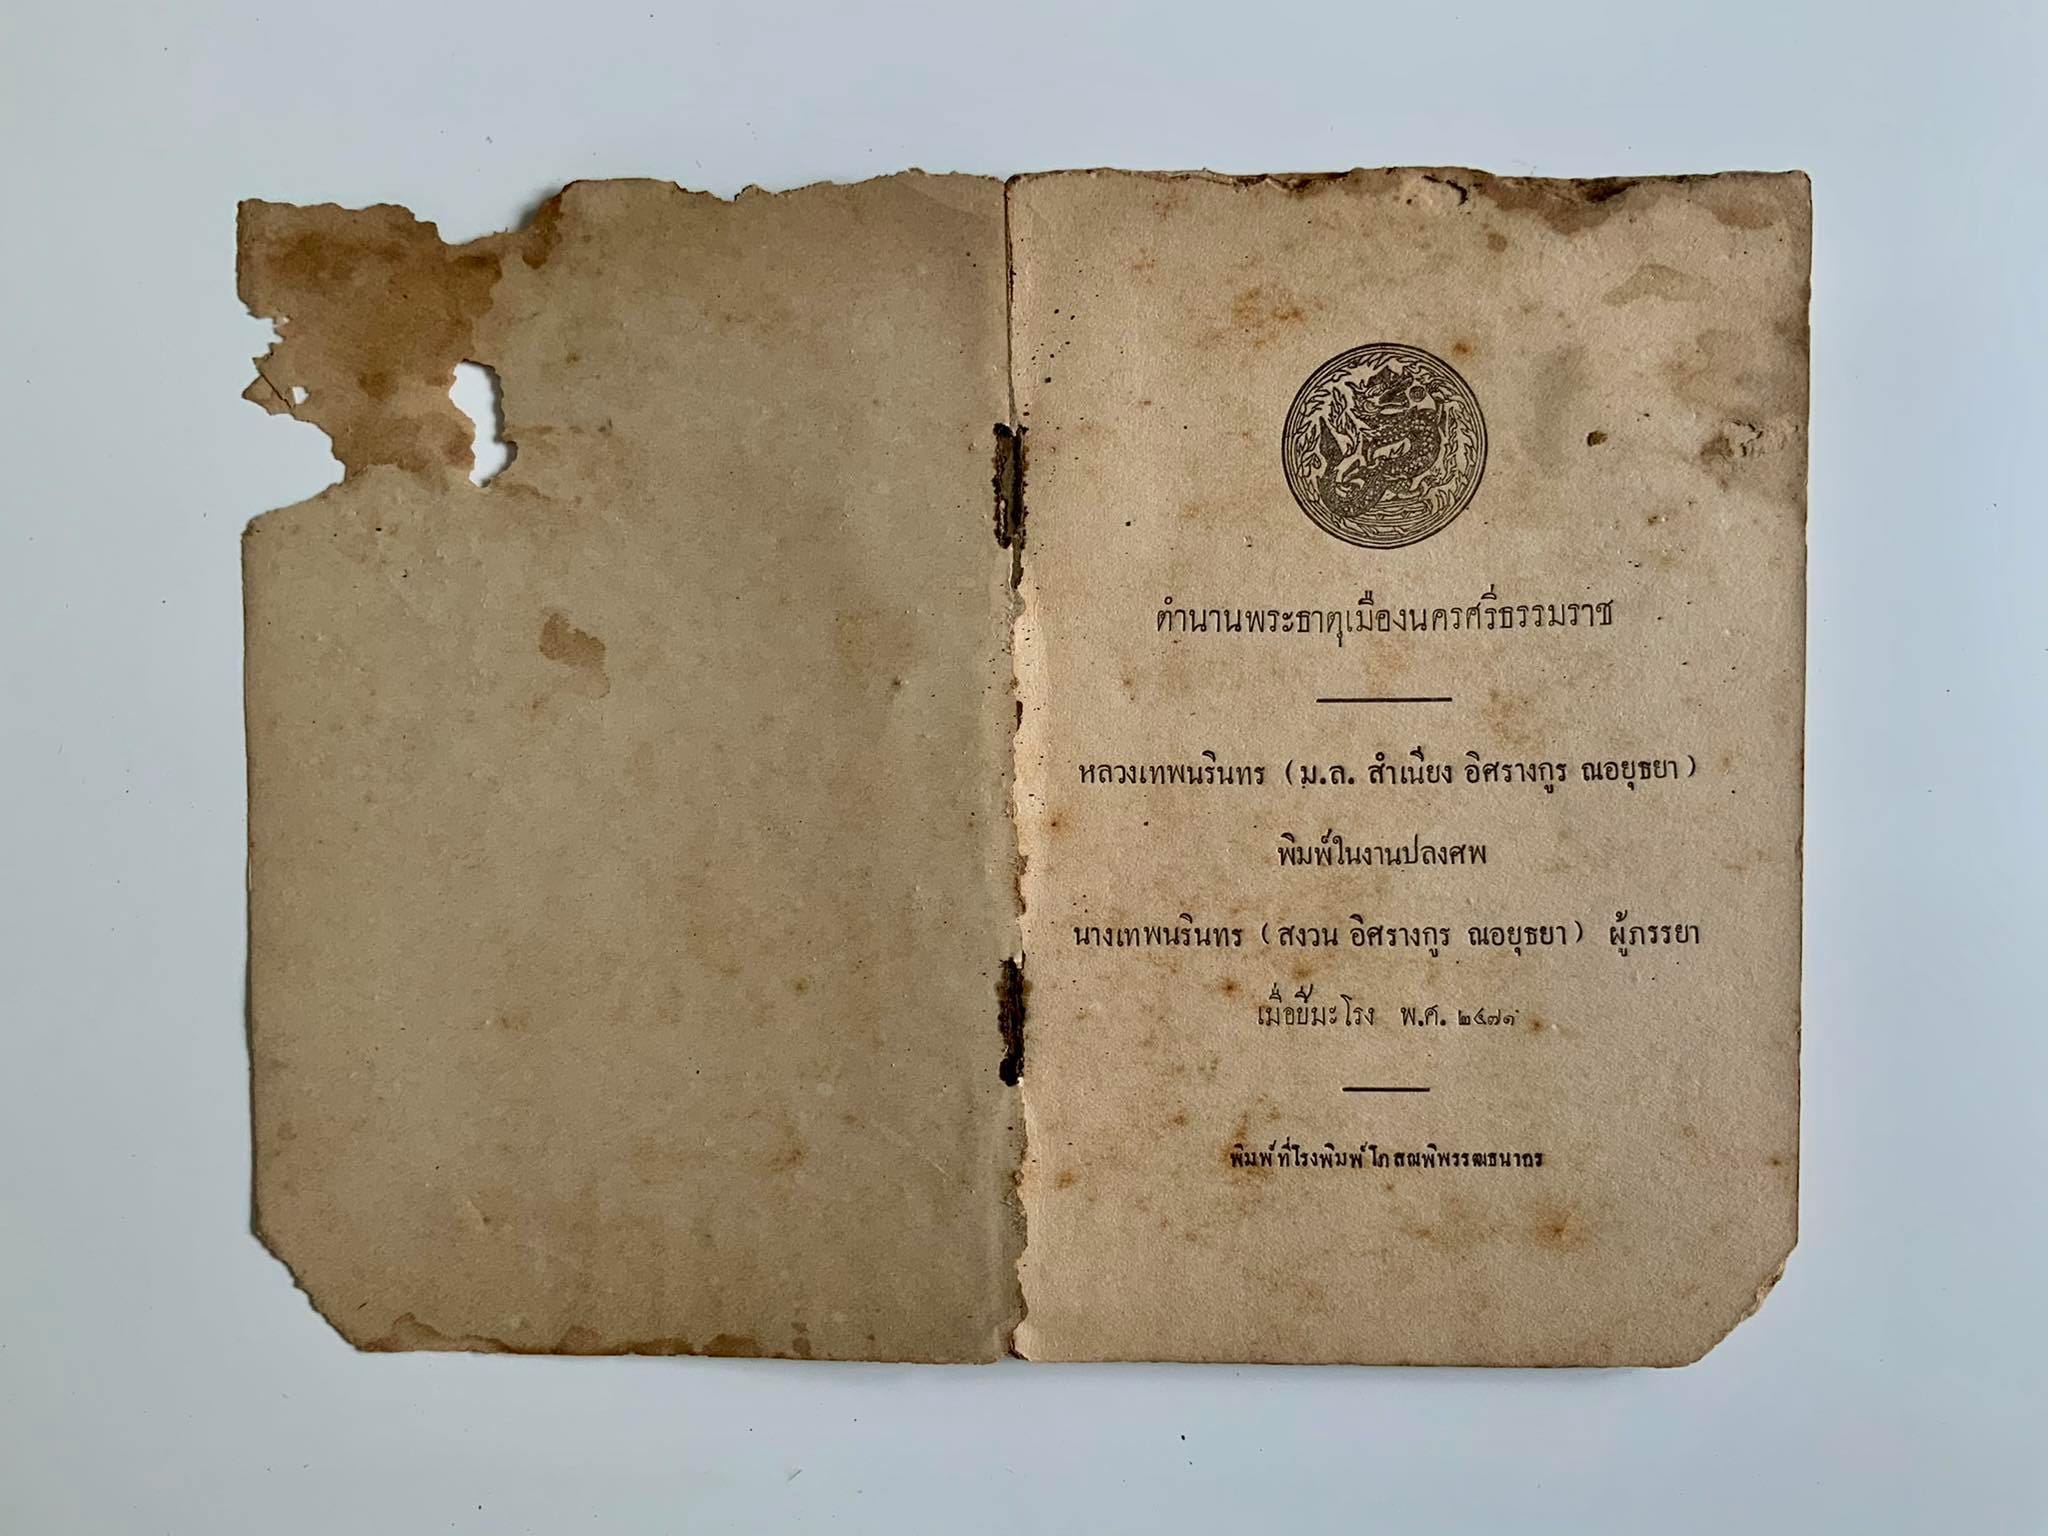 ตำนานพระธาตุเมืองนครศรีธรรมราช
หลวงเทพนรินทร (ม.ล. สำเนียง อิศรางกูร ณอยุธยา)
พิมพ์ในงานปลงศพ
นางเทพนรินทร (สงวน อิศรางกูร ณอยุธยา) ผู้ภรรยา
เมื่อปีมะโรง พ.ศ. ๒๔๗๑
พิมพ์ที่โรงพิมพ์โสภณพิพรรฒธนากร